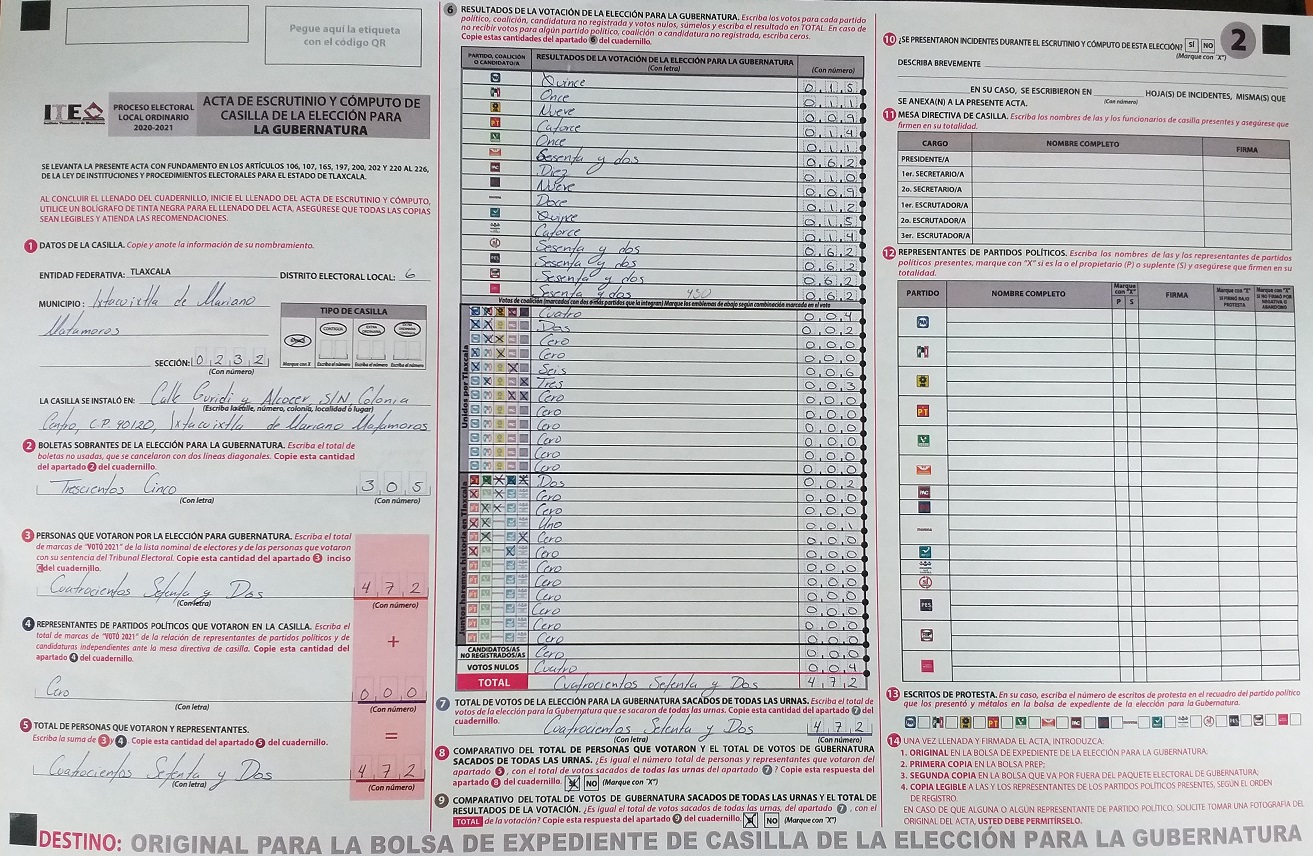 Pegue aquí la etiqueta
con el código QR
ITE
PROCESO ELECTORAL
LOCAL ORDINARIO
2020-2021
ACTA DE ESCRUTINIO Y CÓMPUTO DE
CASILLA DE LA ELECCIÓN PARA
LA GUBERNATURA
SE LEVANTA LA PRESENTE ACTA CON FUNDAMENTO EN LOS ARTÍCULOS 106, 107, 165, 197, 200, 202 Y 220 AL 226,
DE LA LEY DE INSTITUCIONES Y PROCEDIMIENTOS ELECTORALES PARA EL ESTADO DE TLAXCALA.
AL CONCLUIR EL LLENADO DEL CUADERNILLO, INICIE EL LLENADO DEL ACTA DE ESCRUTINIO Y CÓMPUTO,
UTILICE UN BOLÍGRAFO DE TINTA NEGRA PARA EL LLENADO DEL ACTA, ASEGÚRESE QUE TODAS LAS COPIAS
SEAN LEGIBLES Y ATIENDA LAS RECOMENDACIONES.
1 DATOS DE LA CASILLA. Copie y anote la información de su nombramiento.
ENTIDAD FEDERATIVA: TLAXCALA DISTRITO ELECTORAL LOCAL: 6
MUNICIPIO: Ixtacuixtla de Mariano
Matamoros
TIPO DE CASILLA
BÁSICA CONTIGUA EXTRAORDINARIA
Marque con X Escriba el número Escriba el número Escriba el número
SECCIÓN: 0 2 3 2
(Con número)
LA CASILLA SE INSTALÓ EN: Calle Guridi y Alcocer, S/N Colonia
(Escriba la calle, número, colonia, localidad o lugar)
Centro, C.P. 90120, Ixtacuixtla de Mariano Matamoros
2 BOLETAS SOBRANTES DE LA ELECCIÓN PARA LA GUBERNATURA. Escriba el total de
boletas no usadas, que se cancelaron con dos líneas diagonales. Copie esta cantidad
del apartado 2 del cuadernillo.
Trescientos Cinco 3 0 5
(Con letra) (Con número)
3 PERSONAS QUE VOTARON POR LA ELECCIÓN PARA GUBERNATURA. Escriba el total
de marcas de "VOTÓ 2021" de la lista nominal de electores y de las personas que votaron
con su sentencia del Tribunal Electoral. Copie esta cantidad del apartado 3 inciso
C del cuadernillo.
Cuatrocientos Setenta y Dos 4 7 2
(Con letra) (Con número)
4 REPRESENTANTES DE PARTIDOS POLÍTICOS QUE VOTARON EN LA CASILLA. Escriba el
total de marcas de "VOTÓ 2021" de la relación de representantes de partidos políticos y de
candidaturas independientes ante la mesa directiva de casilla. Copie esta cantidad del
apartado 4 del cuadernillo.
+
Cero 0 0 0
(Con letra) (Con número)
5 TOTAL DE PERSONAS QUE VOTARON Y REPRESENTANTES.
Escriba la suma de 3 y 4. Copie esta cantidad del apartado 5 del cuadernillo.
=
Cuatrocientos Setenta y Dos 4 7 2
(Con letra) (Con número)
6 RESULTADOS DE LA VOTACIÓN DE LA ELECCIÓN PARA LA GUBERNATURA. Escriba los votos para cada partido
político, coalición, candidatura no registrada y votos nulos, súmelos y escriba el resultado en TOTAL. En caso de
no recibir votos para algún partido político, coalición o candidatura no registrada, escriba ceros.
Copie estas cantidades del apartado 6 del cuadernillo.
PARTIDO, COALICIÓN O CANDIDATO/A RESULTADOS DE LA VOTACIÓN DE LA ELECCIÓN PARA LA GUBERNATURA
(Con letra) (Con número)
Quince 0 1 5
Once 0 1 1
Nueve 0 0 9
Catorce 0 1 4
Once 0 1 1
Sesenta y dos 0 6 2
Diez 0 1 0
Nueve 0 0 9
morena Doce 0 1 2
Quince 0 1 5
Catorce 0 1 4
Sesenta y dos 0 6 2
PES Sesenta y dos 0 6 2
Sesenta y dos 0 6 2
Sesenta y dos 430 0 6 2
Votos de coalición (marcados con dos o más partidos que la integran) Marque los emblemas de abajo según combinación marcada en el voto
Unidos por Tlaxcala
Cuatro 0 0 4
Dos 0 0 2
Cero 0 0 0
Cero 0 0 0
Seis 0 0 6
Tres 0 0 3
Cero 0 0 0
Cero 0 0 0
Cero 0 0 0
Cero 0 0 0
Cero 0 0 0
Cero 0 0 0
Juntos haremos historia en Tlaxcala
Dos 0 0 2
Cero 0 0 0
Cero 0 0 0
Uno 0 0 1
Cero 0 0 0
Cero 0 0 0
Cero 0 0 0
Cero 0 0 0
Cero 0 0 0
Cero 0 0 0
Cero 0 0 0
Cero 0 0 0
CANDIDATOS/AS NO REGISTRADOS/AS Cero 0 0 0
VOTOS NULOS Cuatro 0 0 4
TOTAL Cuatrocientos Setenta y Dos 4 7 2
7 TOTAL DE VOTOS DE LA ELECCIÓN PARA LA GUBERNATURA SACADOS DE TODAS LAS URNAS. Escriba el total de
votos de la elección para la Gubernatura que se sacaron de todas las urnas. Copie esta cantidad del apartado 7 del
cuadernillo.
Cuatrocientos Setenta y Dos 4 7 2
(Con letra) (Con número)
8 COMPARATIVO DEL TOTAL DE PERSONAS QUE VOTARON Y EL TOTAL DE VOTOS DE GUBERNATURA
SACADOS DE TODAS LAS URNAS. ¿Es igual el número total de personas y representantes que votaron del
apartado 5, con el total de votos sacados de todas las urnas del apartado 7? Copie esta respuesta del
apartado 8 del cuadernillo. SÍ NO (Marque con "X")
9 COMPARATIVO DEL TOTAL DE VOTOS DE GUBERNATURA SACADOS DE TODAS LAS URNAS Y EL TOTAL DE
RESULTADOS DE LA VOTACIÓN. ¿Es igual el total de votos sacados de todas las urnas, del apartado 7, con el
TOTAL de la votación? Copie esta respuesta del apartado 9 del cuadernillo. SÍ NO (Marque con "X")
10 ¿SE PRESENTARON INCIDENTES DURANTE EL ESCRUTINIO Y CÓMPUTO DE ESTA ELECCIÓN? SÍ NO
(Marque con "X")
2
DESCRIBA BREVEMENTE
EN SU CASO, SE ESCRIBIERON EN HOJA(S) DE INCIDENTES, MISMA(S) QUE
(Con número)
SE ANEXA(N) A LA PRESENTE ACTA.
11 MESA DIRECTIVA DE CASILLA. Escriba los nombres de las y los funcionarios de casilla presentes y asegúrese que
firmen en su totalidad.
CARGO NOMBRE COMPLETO FIRMA
PRESIDENTE/A
1er. SECRETARIO/A
2o. SECRETARIO/A
1er. ESCRUTADOR/A
2o. ESCRUTADOR/A
3er. ESCRUTADOR/A
12 REPRESENTANTES DE PARTIDOS POLÍTICOS. Escriba los nombres de las y los representantes de partidos
políticos presentes, marque con "X" si es la o el propietario (P) o suplente (S) y asegúrese que firmen en su
totalidad.
PARTIDO NOMBRE COMPLETO Marque con "X" P S FIRMA Marque con "X" SI FIRMÓ BAJO PROTESTA Marque con "X" SI NO FIRMÓ POR NEGATIVA O ABANDONO
PAN
PRI
PRD
PT
VERDE
PAC
morena
PES
13 ESCRITOS DE PROTESTA. En su caso, escriba el número de escritos de protesta en el recuadro del partido político
que los presentó y métalos en la bolsa de expediente de la elección para la Gubernatura.
14 UNA VEZ LLENADA Y FIRMADA EL ACTA, INTRODUZCA:
1. ORIGINAL EN LA BOLSA DE EXPEDIENTE DE LA ELECCIÓN PARA LA GUBERNATURA.
2. PRIMERA COPIA EN LA BOLSA PREP;
3. SEGUNDA COPIA EN LA BOLSA QUE VA POR FUERA DEL PAQUETE ELECTORAL DE GUBERNATURA;
4. COPIA LEGIBLE A LAS Y LOS REPRESENTANTES DE LOS PARTIDOS POLÍTICOS PRESENTES, SEGÚN EL ORDEN
DE REGISTRO.
EN CASO DE QUE ALGUNA O ALGÚN REPRESENTANTE DE PARTIDO POLÍTICO, SOLICITE TOMAR UNA FOTOGRAFÍA DEL
ORIGINAL DEL ACTA, USTED DEBE PERMITÍRSELO.
DESTINO: ORIGINAL PARA LA BOLSA DE EXPEDIENTE DE CASILLA DE LA ELECCIÓN PARA LA GUBERNATURA